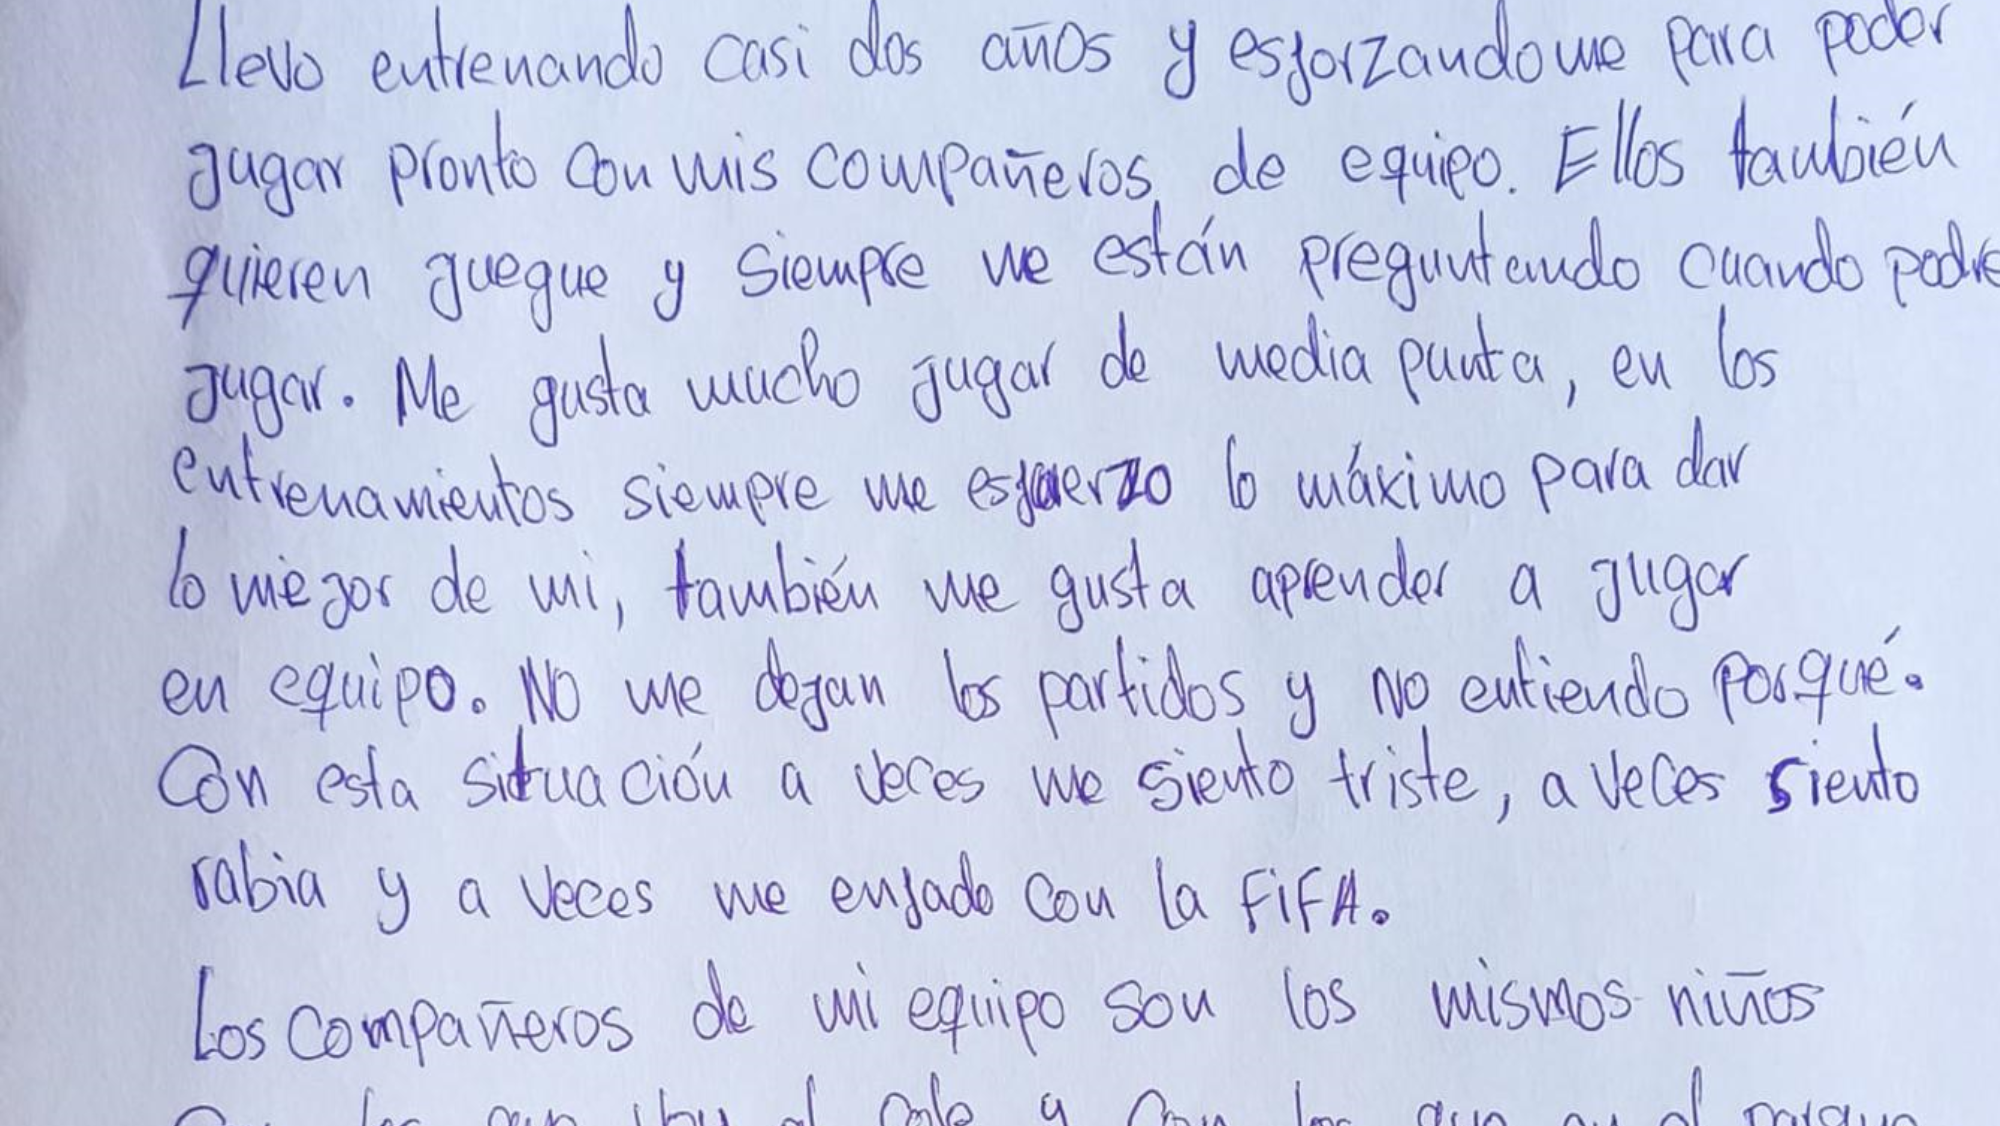 Llevo entrenando casi dos años y esforzandome para poder
jugar pronto con mis compañeros de equipo. Ellos también
quieren juegue y siempre me están preguntando cuando podre
jugar. Me gusta mucho jugar de media punta, en los
entrenamientos siempre me esfuerzo lo máximo para dar
lo mejor de mi, también me gusta aprender a jugar
en equipo. No me dejan los partidos y no entiendo porqué.
Con esta situación a veces me siento triste, a veces siento
rabia y a veces me enfado con la FIFA.
Los compañeros de mi equipo son los mismos niños
con los que voy al cole y con los que al parque